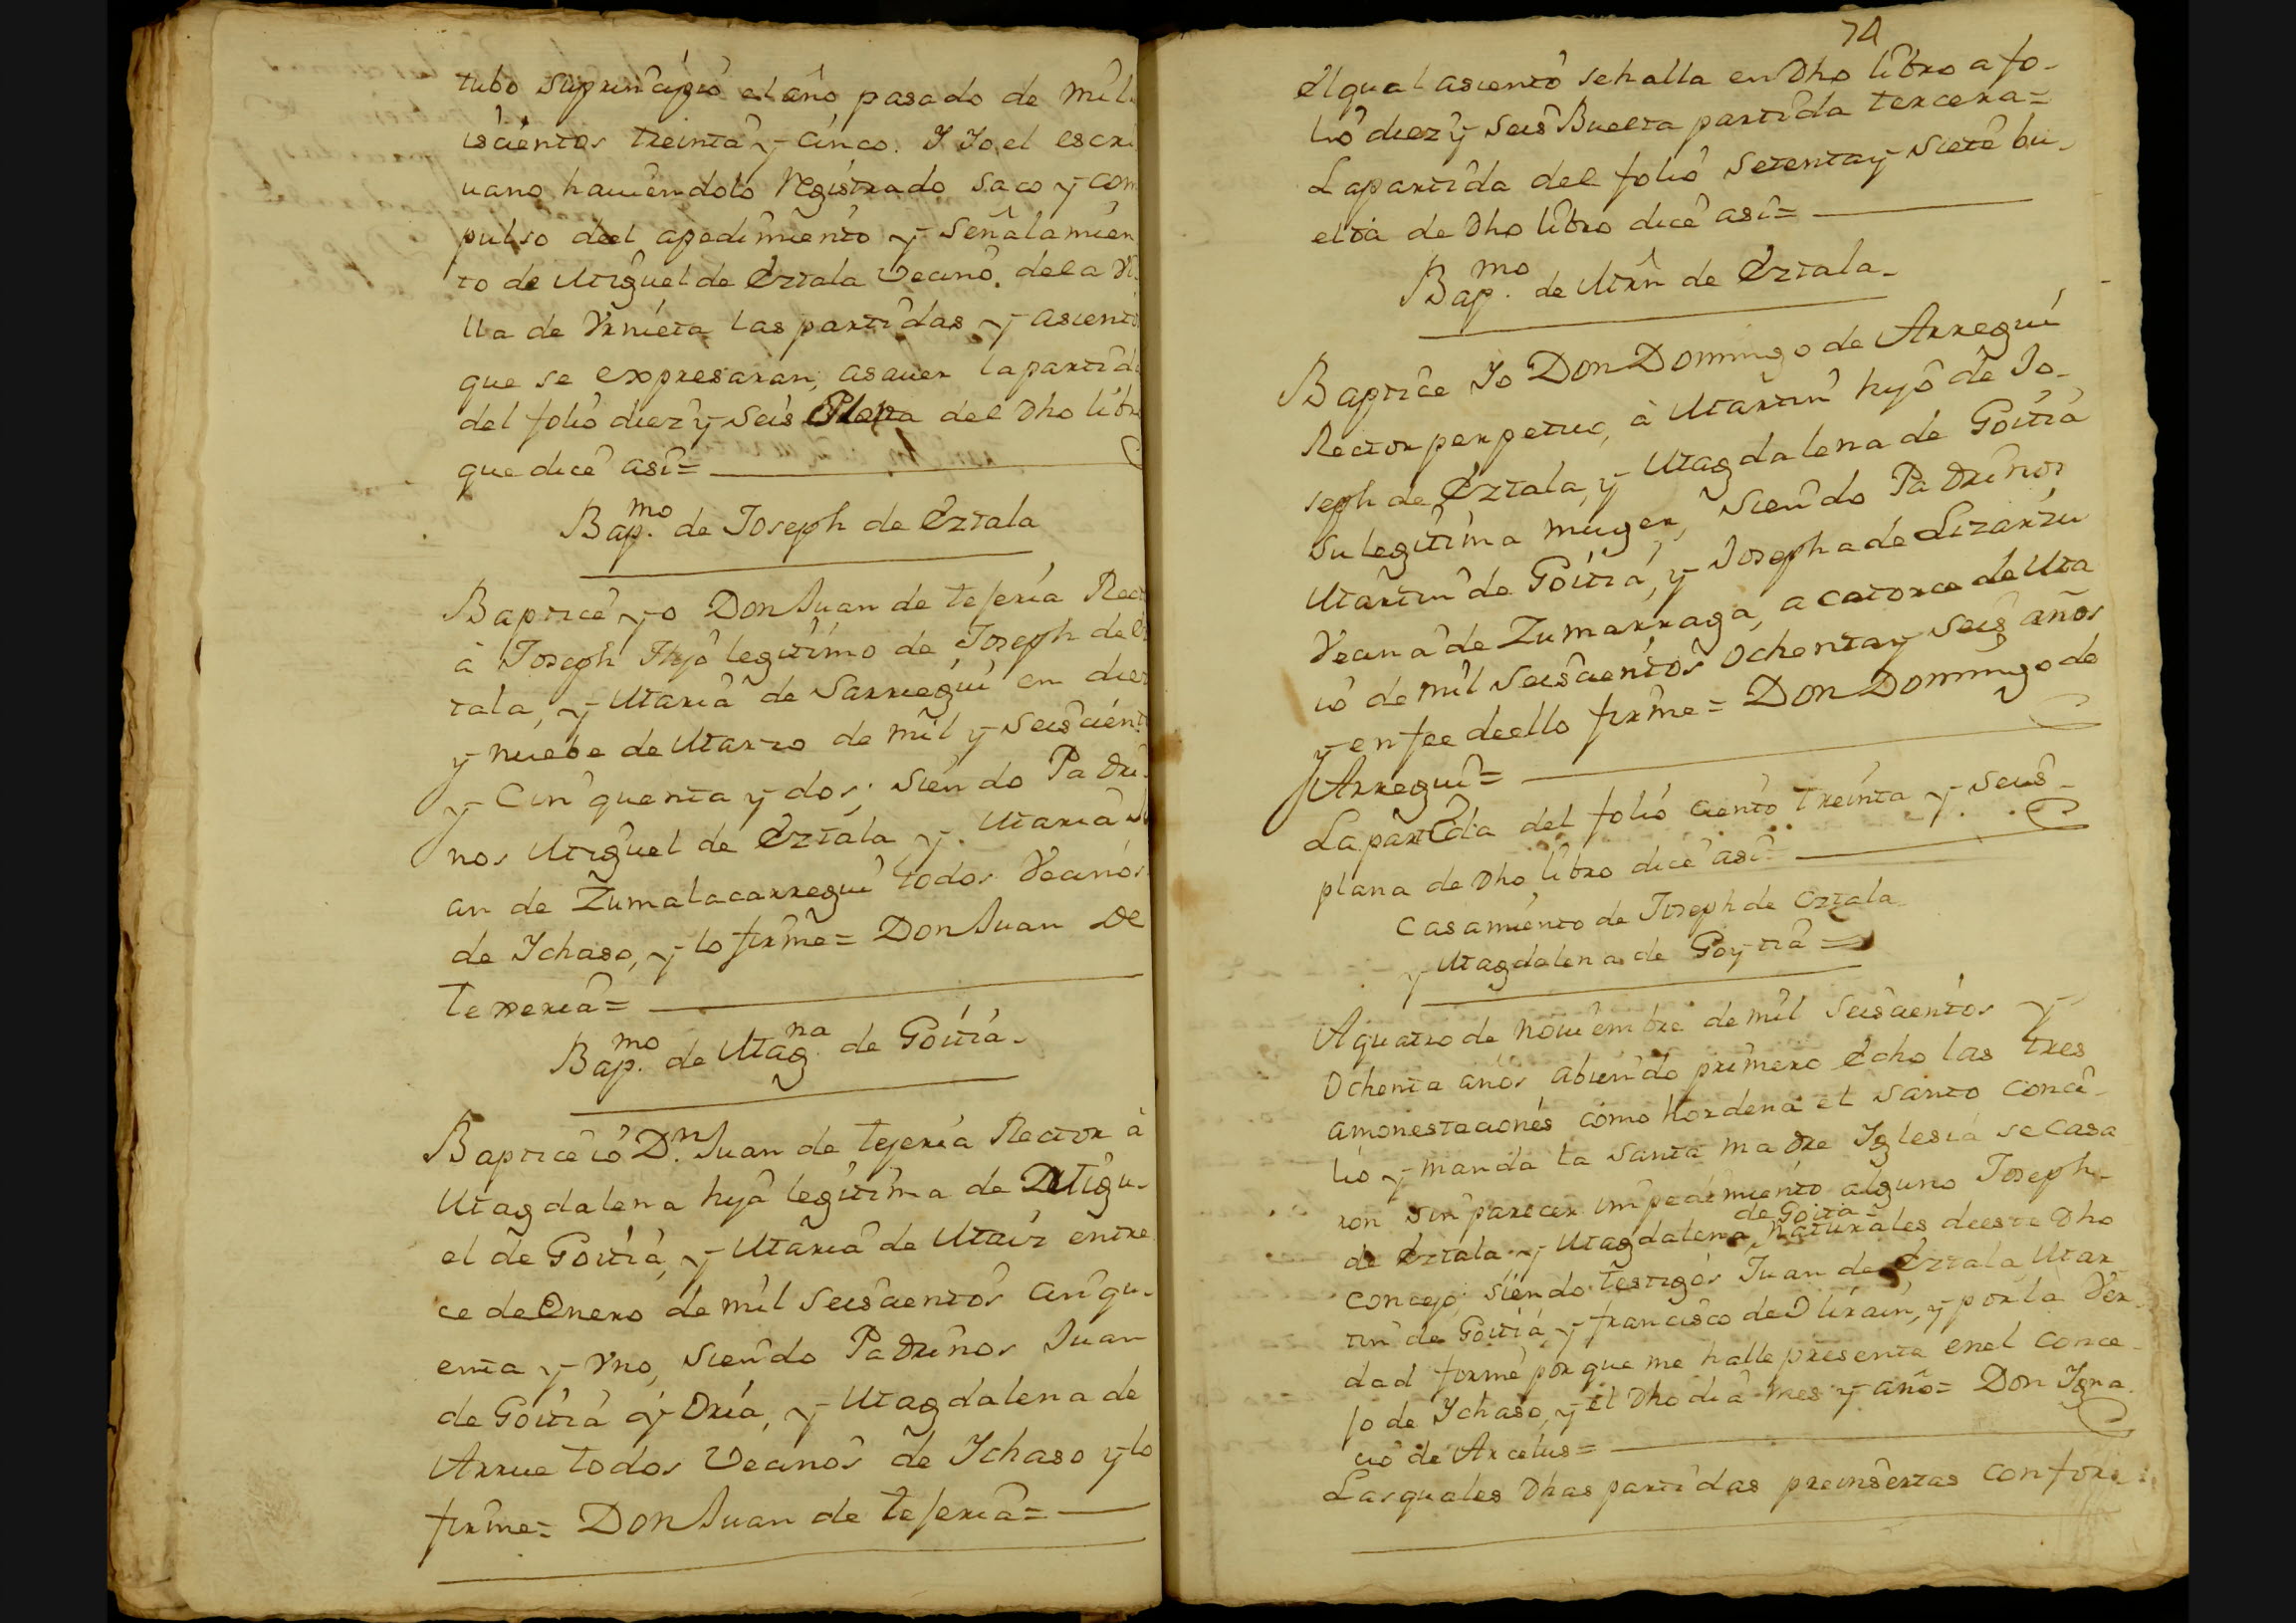 tubo suprincipio el año pasado de mil
iscientos treinta y cinco. I Io el escri
uano hauiendolo Registrado saco y com
pulso deel apedimiento y señalamien
to de Miguel de Eztala Vecino. dela Vi
lla de Vrnieta las partidas y asiento
que se expresaran, asauer la partida
del folio diez y seis Plana del Dho libro
que dice asi=
Bap.mo de Joseph de Eztala
Baptice yo Don Juan de tejeria Rect
à Joseph Hijo legitimo de Joseph de Ez
tala, y Maria de Sarriegui en diez
y nuebe de Marzo de mil y seiscient
y Cinquenta y dos; siendo Padri
nos Miguel de Eztala y Maria Ju
an de Zumalacarregui todos Vecinos
de Ichaso, y lo firme= Don Juan De
Texeria=
Bap.mo de Mag.na de Goitia.
Baptice io D.n Juan de tejeria Rector à
Magdalena hija legitima de Migu-
el de Goitia, y Maria de Maiz entre
ce de Enero de mil seiscientos cinqu-
enta y Vno, siendo Padrinos Juan
de Goitia y Oria, y Magdalena de
Arrue todos Vecinos de Ichaso y lo
firme= Don Juan de tejeria=
74
el qual asiento se halla en Dho libro a fo-
lio diez y seis Buelta partida tercera=
La partida del folio setenta y siete bu-
elta de Dho libro dice asi=
Bap.mo de Mrn de Eztala-
Baptice Io Don Domingo de Arregui
Rector perpetuo, à Martin hijo de Jo-
seph de Eztala, y Magdalena de Goitia
su legitima muger, siendo Padrinos
Martin de Goitia, y Josepha de Lizarzu
Vecina de Zumarraga, a catorce de Ma
io de mil seiscientos ochenta y seis años
y en fee deello firme= Don Domingo de
Arregui=
La partida del folio ciento treinta y seis-
plana de Dho libro dice asi=
Casamiento de Joseph de Eztala
y Magdalena de Goytia=
A quatro de nouiembre de mil seiscientos y
Ochenta años abiendo primero echo las tres
amonestaciones como hordena el santo conci-
lio y manda la santa madre Iglesia se casa
ron sin parecer impedimiento alguno Joseph
de Goitia
de Eztala, y Magdalena, Naturales deeste Dho
concejo, siendo testigos Juan de Eztala, Mar
tin de Goitia, y francisco de Olirain, y por la Ver
dad firme porque me halle presente enel conce-
jo de Ichaso, y el Dho dia mes y año= Don Igna
cio de Arcelus=
Las quales Dhas partidas preinsertas confor